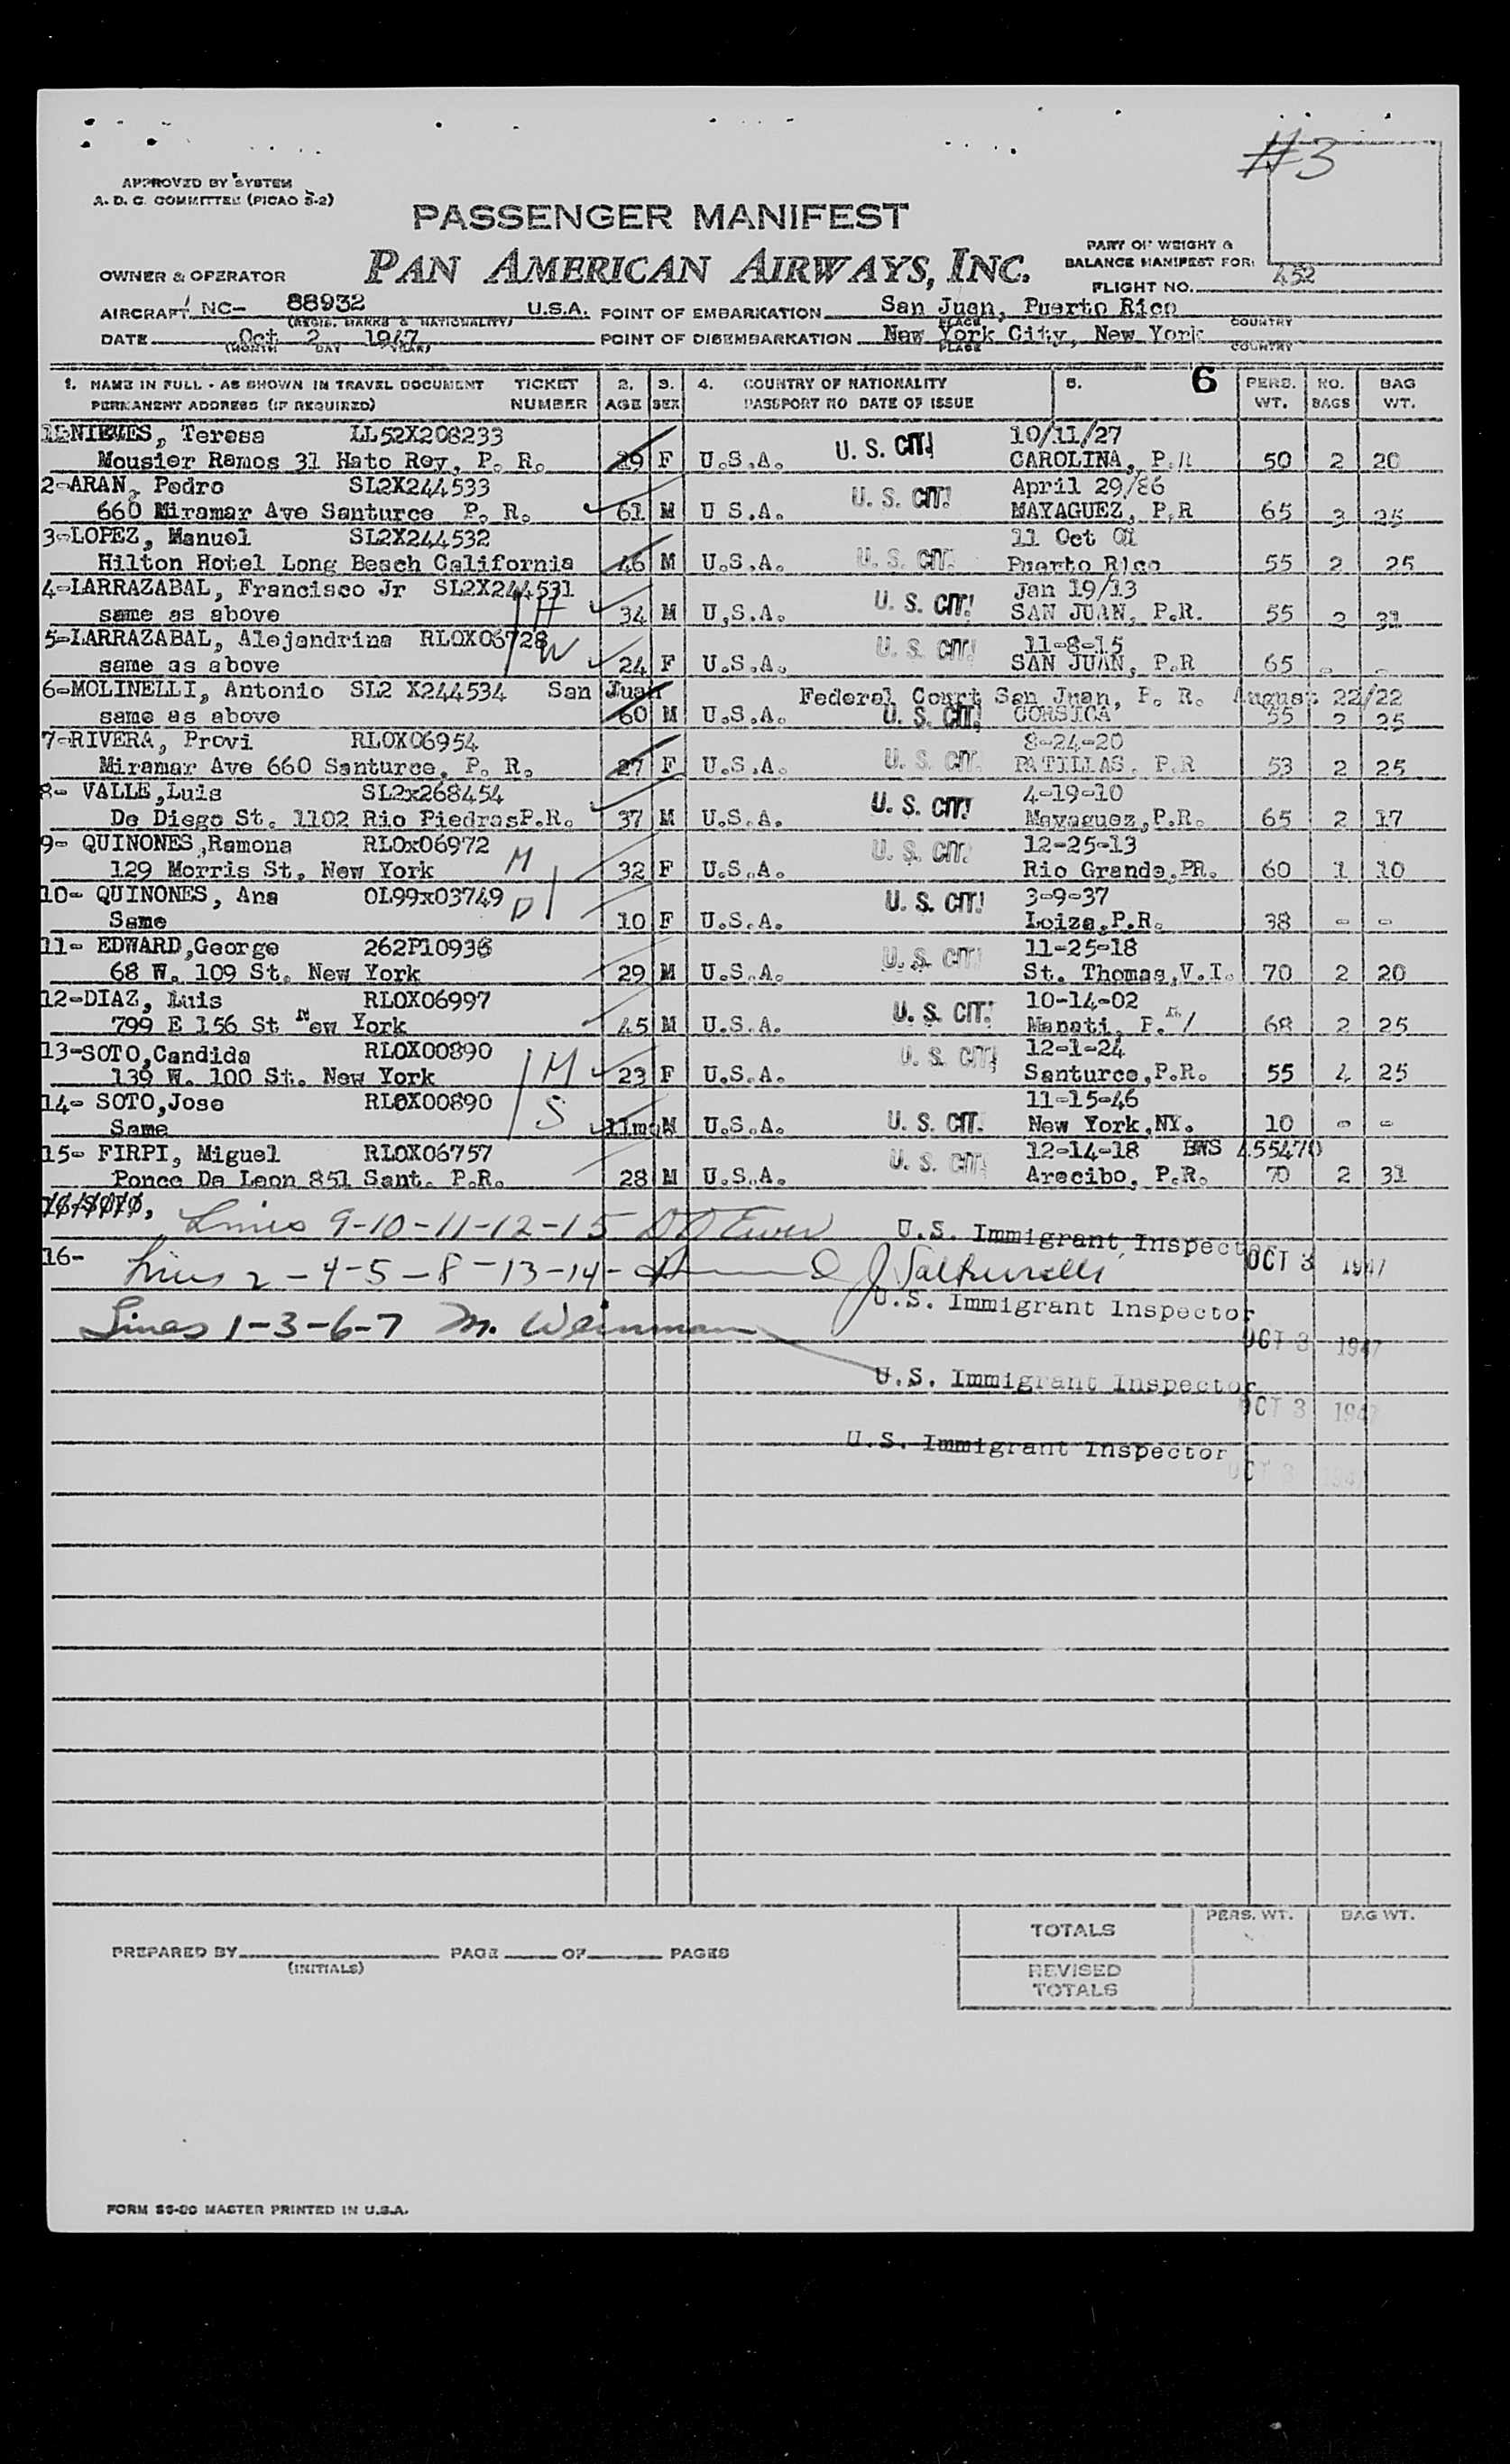 #3
APPROVED BY SYSTEM
A. D. C. COMMITTEE (PICAO S-2)
PASSENGER MANIFEST
PAN AMERICAN AIRWAYS, INC.
PART OF WEIGHT &
BALANCE MANIFEST FOR:
OWNER & OPERATOR
FLIGHT NO. 452
AIRCRAFT NC- 88932 U.S.A. POINT OF EMBARKATION San Juan, Puerto Rico
(REGIS. MARKS & NATIONALITY) PLACE COUNTRY
DATE Oct 2 1947 POINT OF DISEMBARKATION New York City, New York
(MONTH DAY YEAR) PLACE COUNTRY
1. NAME IN FULL - AS SHOWN IN TRAVEL DOCUMENT TICKET 2. 3. 4. COUNTRY OF NATIONALITY 5. 6 PERS. NO. BAG
PERMANENT ADDRESS (IF REQUIRED) NUMBER AGE SEX PASSPORT NO DATE OF ISSUE WT. BAGS WT.
NIEVES, Teresa LL52X208233 10/11/27
Mousier Ramos 31 Hato Rey, P. R. 29 F U.S.A. U. S. CIT. CAROLINA, P.R 50 2 20
2-ARAN, Pedro SL2X244533 April 29/86
660 Miramar Ave Santurce P. R. 61 M U S.A. U. S. CIT. MAYAGUEZ, P.R 65 3 25
3-LOPEZ, Manuel SL2X244532 11 Oct 01
Hilton Hotel Long Beach California 46 M U.S.A. U. S. CIT. Puerto Rico 55 2 25
4-LARRAZABAL, Francisco Jr SL2X244531 H Jan 19/13
same as above 34 M U.S.A. U. S. CIT. SAN JUAN, P.R. 55 2 31
5-LARRAZABAL, Alejandrina RLOX06728 W 11-8-15
same as above 24 F U.S.A. U. S. CIT. SAN JUAN, P.R 65 - -
6-MOLINELLI, Antonio SL2 X244534 San Juan Federal Court San Juan, P. R. August 22/22
same as above 60 M U.S.A. U. S. CIT. CORSICA 55 2 25
7-RIVERA, Provi RLOX06954 8-24-20
Miramar Ave 660 Santurce, P. R. 27 F U.S.A. U. S. CIT. PATILLAS, P.R 53 2 25
8- VALLE,Luis SL2x268454 4-19-10
De Diego St. 1102 Rio PiedrasP.R. 37 M U.S.A. U. S. CIT. Mayaguez,P.R. 65 2 17
9- QUINONES,Ramona RLOx06972 M 12-25-13
129 Morris St. New York 32 F U.S.A. U. S. CIT. Rio Grande,PR. 60 1 10
10- QUINONES, Ana OL99x03749 D 3-9-37
Same 10 F U.S.A. U. S. CIT. Loiza,P.R. 38 - -
11- EDWARD,George 262P10936 11-25-18
68 W. 109 St. New York 29 M U.S.A. U. S. CIT. St. Thomas,V.I. 70 2 20
12-DIAZ, Luis RLOX06997 10-14-02
799 E 156 St New York 45 M U.S.A. U. S. CIT. Manati, P. 68 2 25
13-SOTO,Candida RLOX00890 M 12-1-24
139 W. 100 St. New York 23 F U.S.A. U. S. CIT. Santurce,P.R. 55 4 25
14- SOTO,Jose RLOX00890 S 11-15-46
Same 11mos M U.S.A. U. S. CIT. New York,NY. 10 - -
15- FIRPI, Miguel RLOX06757 12-14-18 455470
Ponce De Leon 851 Sant. P.R. 28 M U.S.A. U. S. CIT. Arecibo, P.R. 70 2 31
Lines 9-10-11-12-15 U.S. Immigrant Inspector
16- Lines 2-4-5-8-13-14- OCT 3 1947
U.S. Immigrant Inspector
Lines 1-3-6-7 M. Weinman OCT 3 1947
U.S. Immigrant Inspector
OCT 3 1947
U.S. Immigrant Inspector
OCT 3 194
TOTALS PERS. WT. BAG WT.
PREPARED BY PAGE OF PAGES
(INITIALS)
REVISED
TOTALS
FORM MASTER PRINTED IN U.S.A.